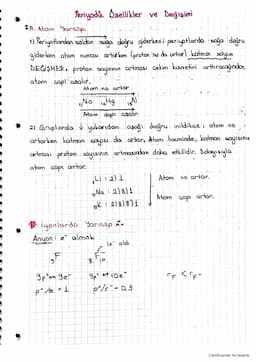 Periyodik Özellikler ve Değişimi
A. Atom Yarıçapı
1) Periyotlardan soldan sağa doğru gidersek; periyotlarda sağa doğru
giderken atom numarası artarken (proton sa. da artar) katman sayısı
DEĞİŞMEZ, proton sayısının artması çekim kuvvetini arttıracağından
atom çapı azalır.
Atom no artar
Na Mg Al
Atom çapı azalır
2) Gruplarda ↓ yukarıdan aşağı doğru inildikçe; atom no
artarken katman sayısı da artar. Atom hacminde, katman sayısının
artması proton sayısının artmasından daha etkilidir. Dolayısıyla
atom çapı artar.
₃Li : 2)1 Atom no artar.
Na : 2)8)1
K : 2)8)8)1 Atom çapı artar.
İyonlarda Yarıçap
Anyon: e⁻ almak
1e⁻ aldı
₉F ₉F⁻₁₀
9p⁺ = 9e⁻ 9p⁺ 10e⁻ rF < rF⁻
p⁺/e⁻ = 1 p⁺/e⁻ = 0,9
CamScanner ile tarandı